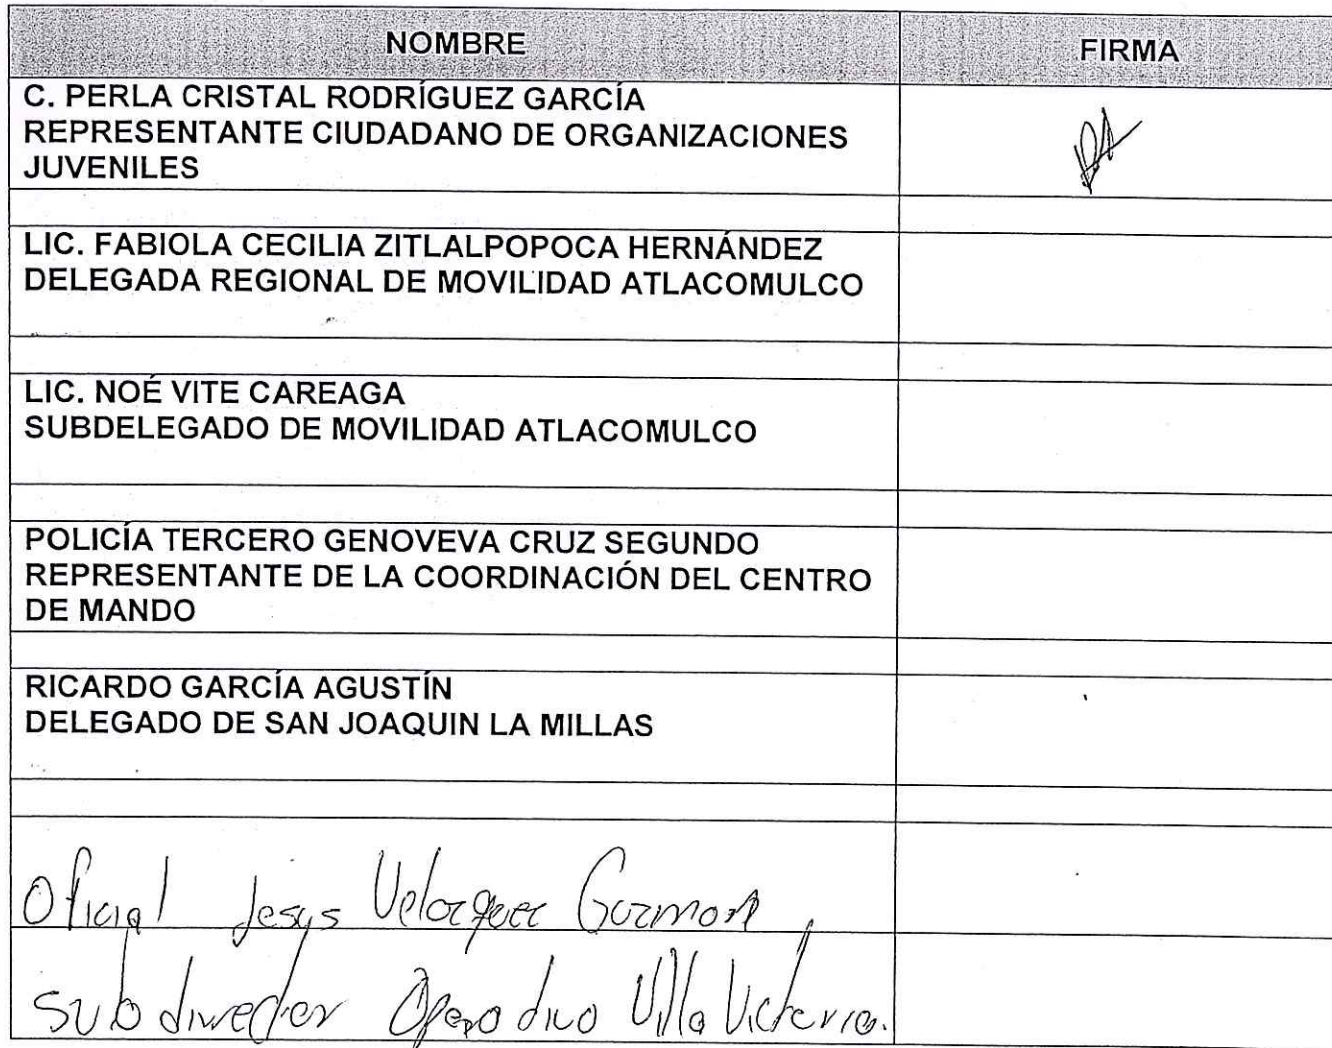 NOMBRE
FIRMA
C. PERLA CRISTAL RODRÍGUEZ GARCÍA
REPRESENTANTE CIUDADANO DE ORGANIZACIONES
JUVENILES
LIC. FABIOLA CECILIA ZITLALPOPOCA HERNÁNDEZ
DELEGADA REGIONAL DE MOVILIDAD ATLACOMULCO
LIC. NOÉ VITE CAREAGA
SUBDELEGADO DE MOVILIDAD ATLACOMULCO
POLICÍA TERCERO GENOVEVA CRUZ SEGUNDO
REPRESENTANTE DE LA COORDINACIÓN DEL CENTRO
DE MANDO
RICARDO GARCÍA AGUSTÍN
DELEGADO DE SAN JOAQUIN LA MILLAS
Oficial Jesus Velazquez Guzman,
Subdirector Operativo Villa Victoria.